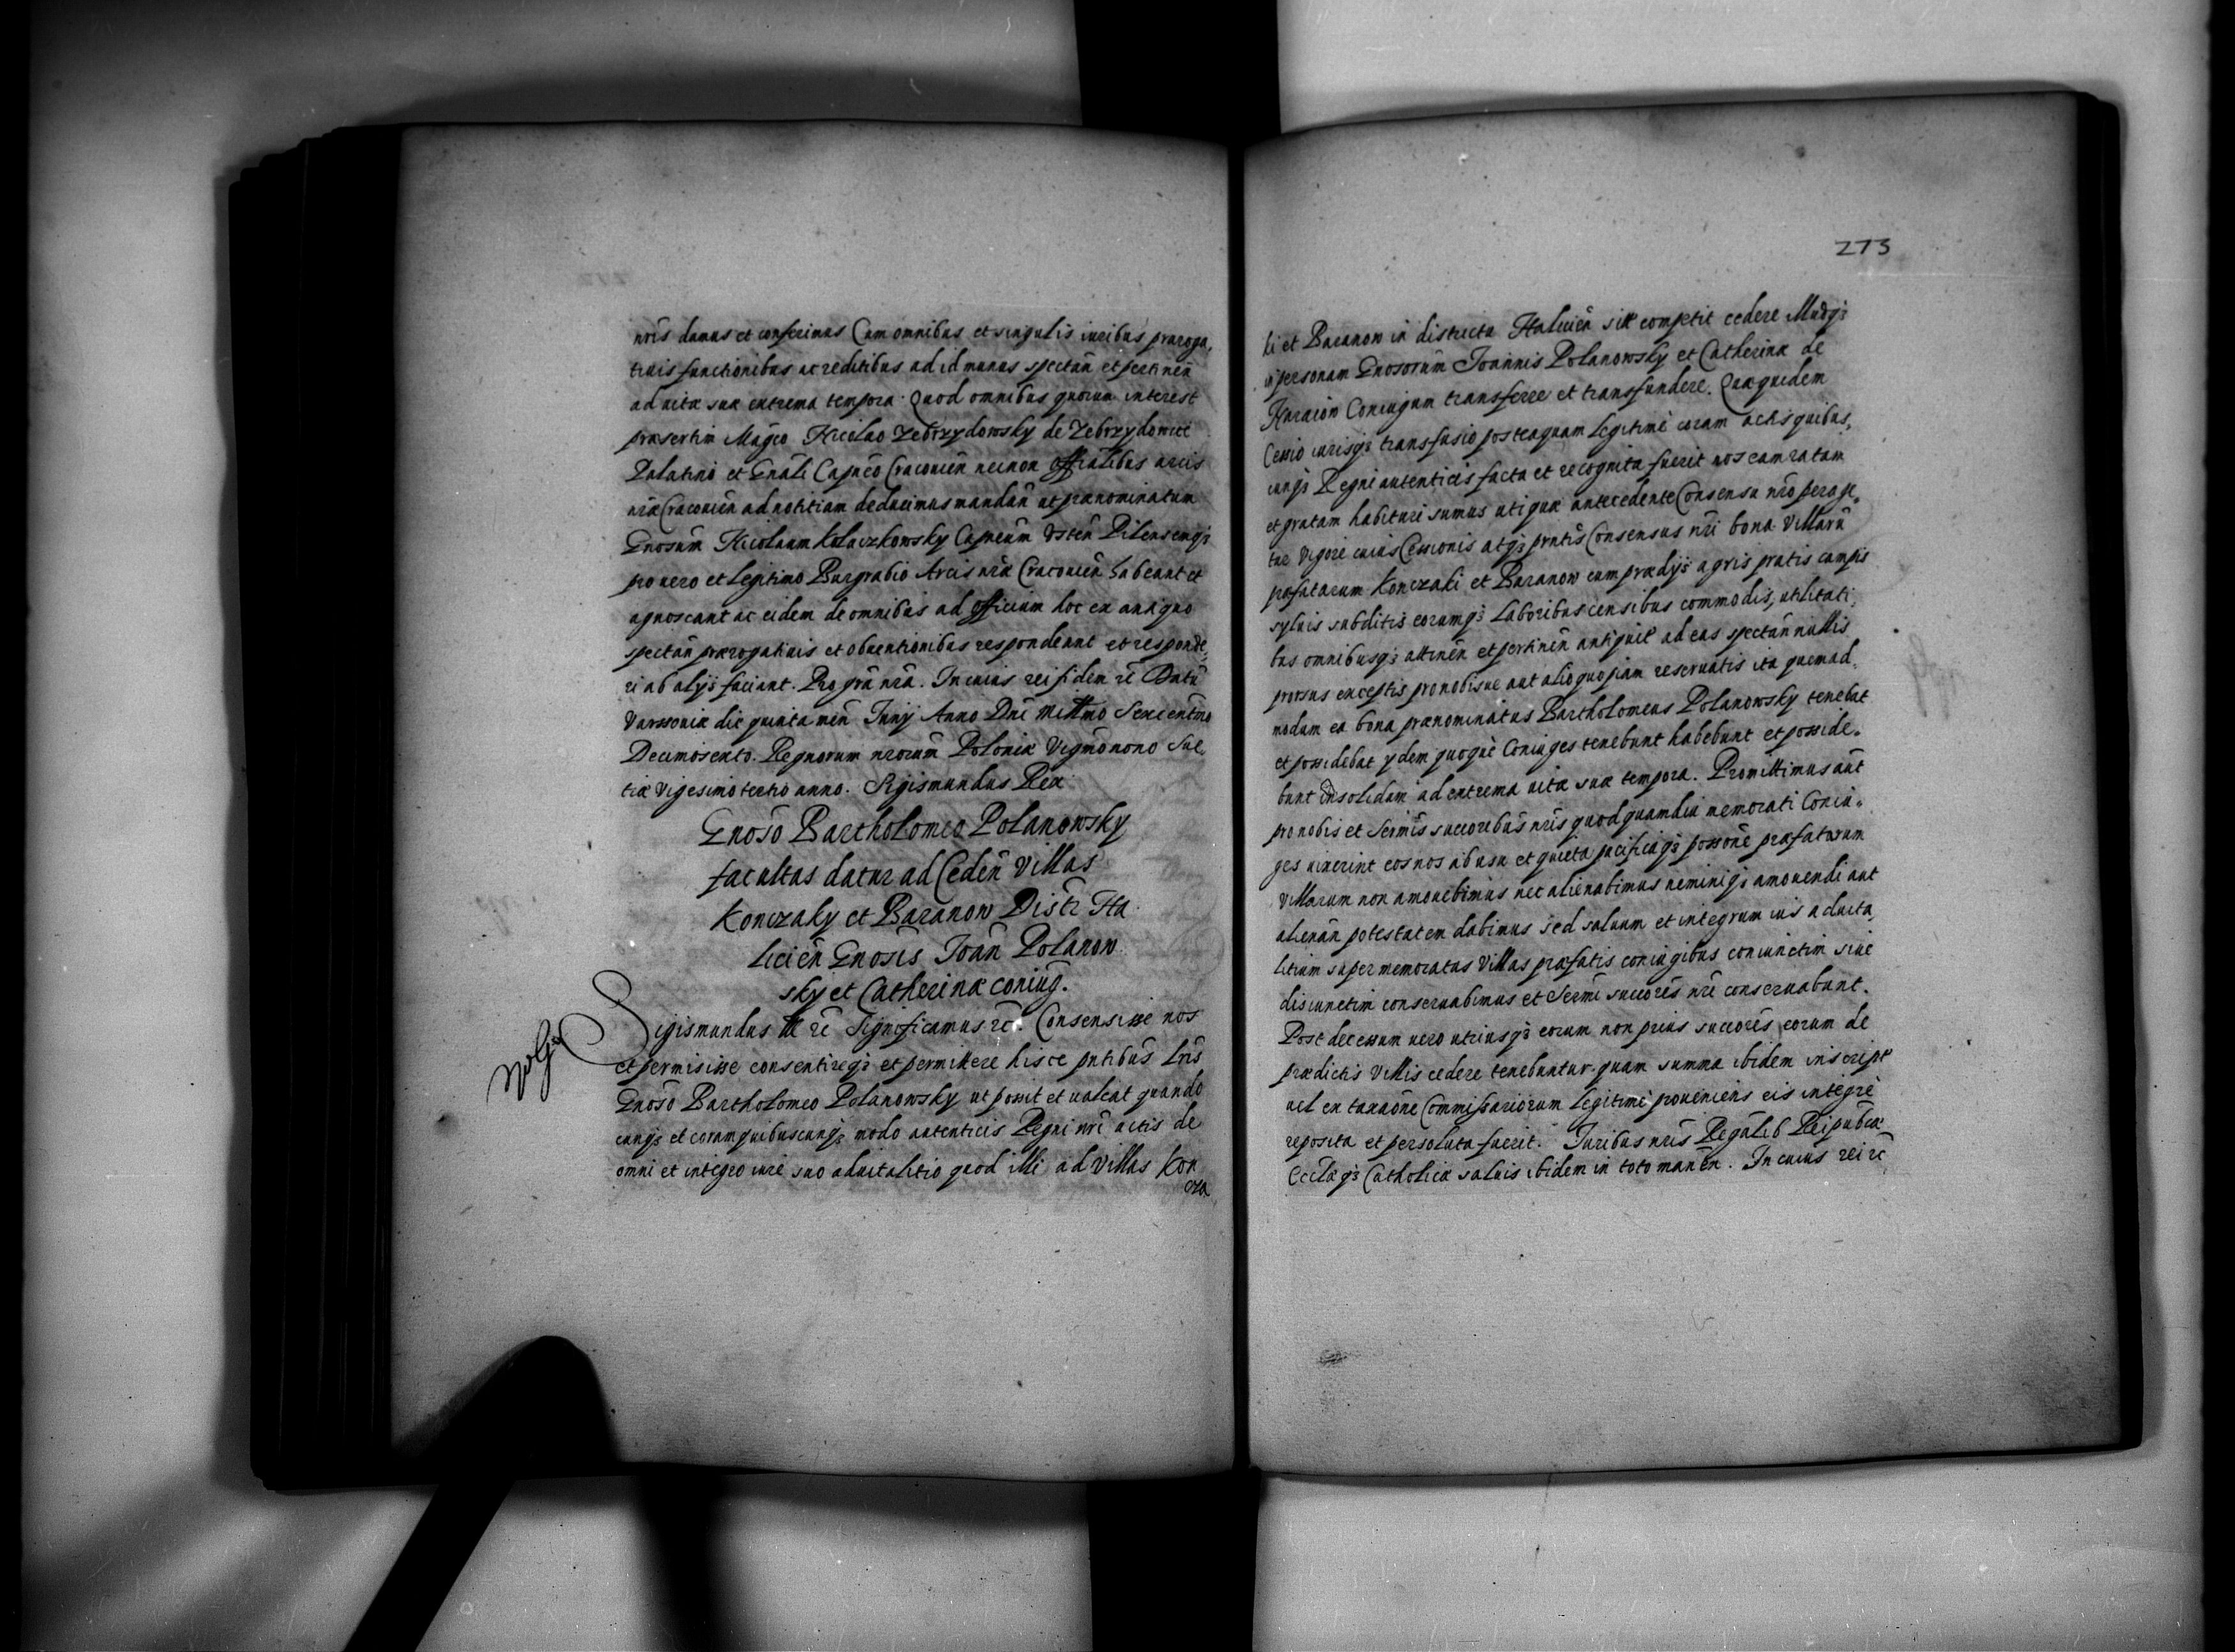 nr̃is damus et conferimus Cum omnibus et singulis iuribus præroga,
tiuis functionibus ac reditibus ad id munus spectañ et pertineñ
ad uitæ suæ extrema tempora. Quod omnibus quorum interest
præsertim Mag̃co Nicolao Zebrzydowsky de Zebrzydowice
Palatino et Gñali Capñeo Cracouieñ necnon Offialibus arcis
nr̃æ Cracouieñ ad notitiam deducimus mandañ ut prænominatum
Gnosum Nicolaum Kolaczkowsky Capneum Osteñ Pilensemq3
pro uero et legitimo Burgrabio Arcis nr̃æ Cracouieñ habeant et
agnoscant ac eidem de omnibus ad officium hoc ex antiquo
spectañ prærogatiuis et obuentionibus respondeant et responde,
ri ab alijs faciant. Pro gr̃a nr̃a. In cuius rei fidem rc̃ Datũ
Varssouiæ die quinta meñ Junij Anno Dñi Millmo Sexcentmo
Decimosexto. Regnorum nrorum Poloniæ Vigmonono Sue,
tiæ Vigesimotertio anno. Sigismundus Rex
Gnoso Bartholomeo Polanowsky
facultas datur ad Cedeñ Villas
Konczaky et Baranow Distr Ha
licieñ Gnosis Joañ Polanow
sky et Catherinæ coniug̃.
Sigismundus III rc̃ Significamus rc̃. Consensisse nos
et permisisse consentireq3 et permittere hisce pñtibus lr̃is
Gnoso Bartholomeo Polanowsky ut possit et ualeat quando
cunq3 et coram quibuscunq3 modo autenticis Regni nr̃i actis de
omni et integro iure suo aduitalitio quod illi ad Villas Kon
cza
273
ki et Baranow in districtu Halicieñ sitæ competit cedere Illudq3
in personam Gnosorum Joannis Polanowsky et Catherinæ de
Haraiow Coniugum transferre et transfundere. Quæquidem
Cessio iurisq3 transfusio posteaquam legitime coram actis quibus,
cunq3 Regni autenticis facta et recognita fuerit nos eam ratam
et gratam habituri sumus utiquæ antecedente Consensu nr̃o perage,
tur Vigore cuius Cessionis atq3 pñtis Consensus nr̃i bona Villarũ
præfatarum Konczaki et Baranow cum prædijs agris pratis campis
syluis subditis eorumq3 laboribus censibus commodis, utilitati,
bus omnibusq3 attineñ et pertineñ antiquit ad eas spectañ nullis
prorsus exceptis pro nobisue aut alio quopiam reseruatis ita quemad,
modum ea bona prænominatus Bartholomeus Polanowsky tenebat
et possidebat ijdem quoque Coniuges tenebunt habebunt et posside,
bunt in solidum ad extrema uitæ suæ tempora. Promittimus aũt
pro nobis et Sermis succoribus nr̃is quod quamdiu memorati Coniu,
ges uixerint eos nos ab usu et quieta pacificaq3 possone præfatarum
Villarum non amouebimus nec alienabimus neminiq3 amouendi aut
alienañ potestatem dabimus sed saluum et integrum ius aduita,
litium super memoratas Villas præfatis coniugibus coniunctim siue
disiunctim conseruabimus et Sermi succores nr̃i conseruabunt.
Post decessum uero utriusq3 eorum non prius succores eorum de
prædictis Villis cedere tenebuntur. quam summa ibidem inscript
uel ex taxaõne Commissariorum legitime proueniens eis integre
reposita et persoluta fuerit. Juribus nr̃is Regalib Reipubcæ
Ecclæq3 Catholicæ saluis ibidem in toto maneñ. In cuius rei rc̃